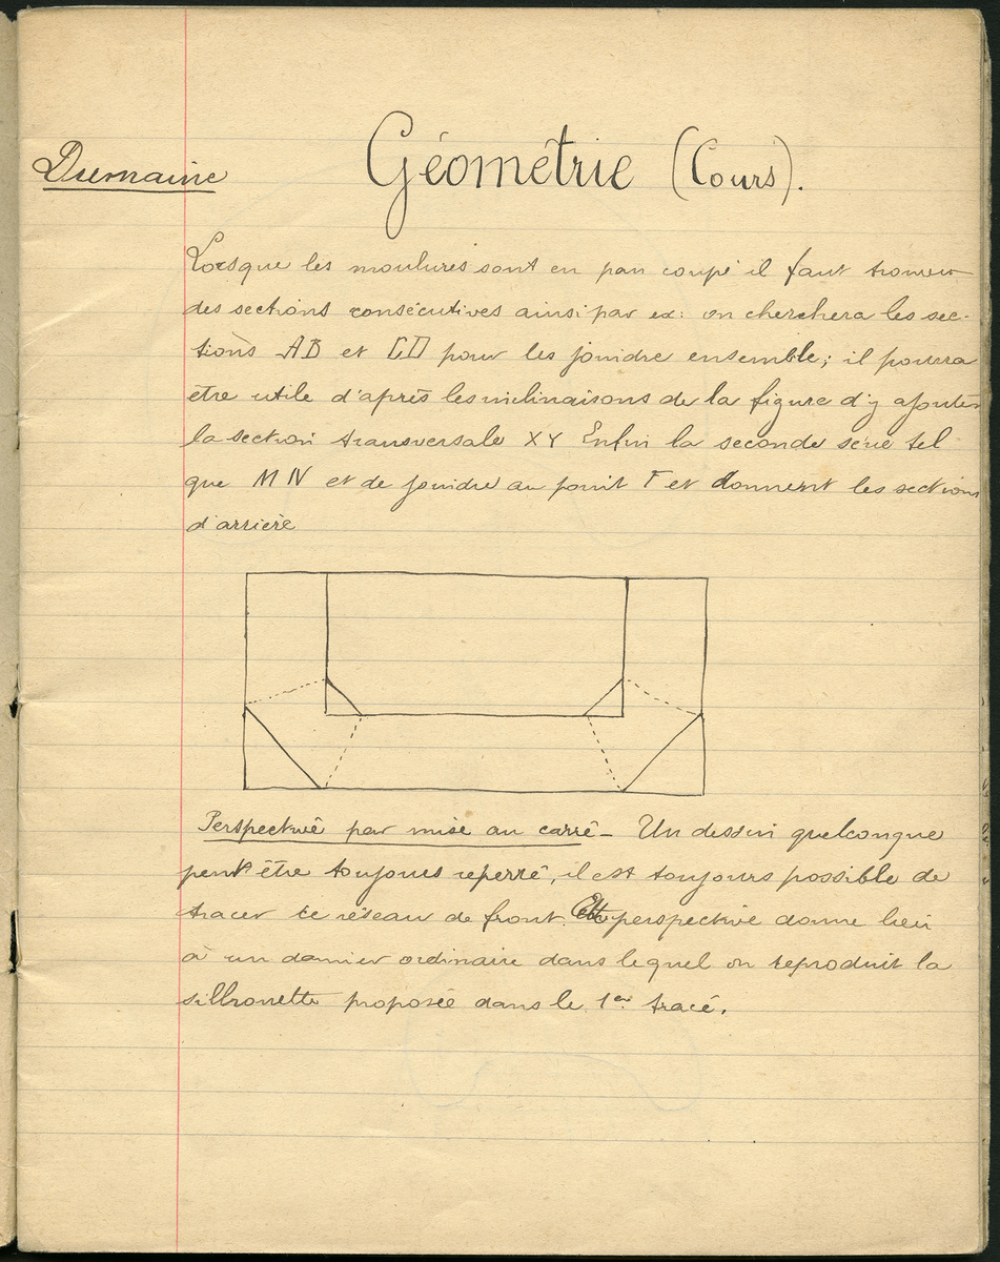 Dumaine
Géométrie (Cours).
Lorsque les moulures sont en pan coupé il faut trouver
des sections consécutives ainsi par ex: on cherchera les sec-
tions AB et CD pour les joindre ensemble; il pourra
être utile d'après les inclinaisons de la figure d'y ajouter
la section transversale XY Enfin la seconde série tel
que MN et de joindre au point F et donnent les sections
d'arrière
Perspective par mise au carré - Un dessin quelconque
peut être toujours reperré, il est toujours possible de
tracer ce réseau de front. Cette perspective donne lieu
à un damier ordinaire dans lequel on reproduit la
silhouette proposée dans le 1er tracé.